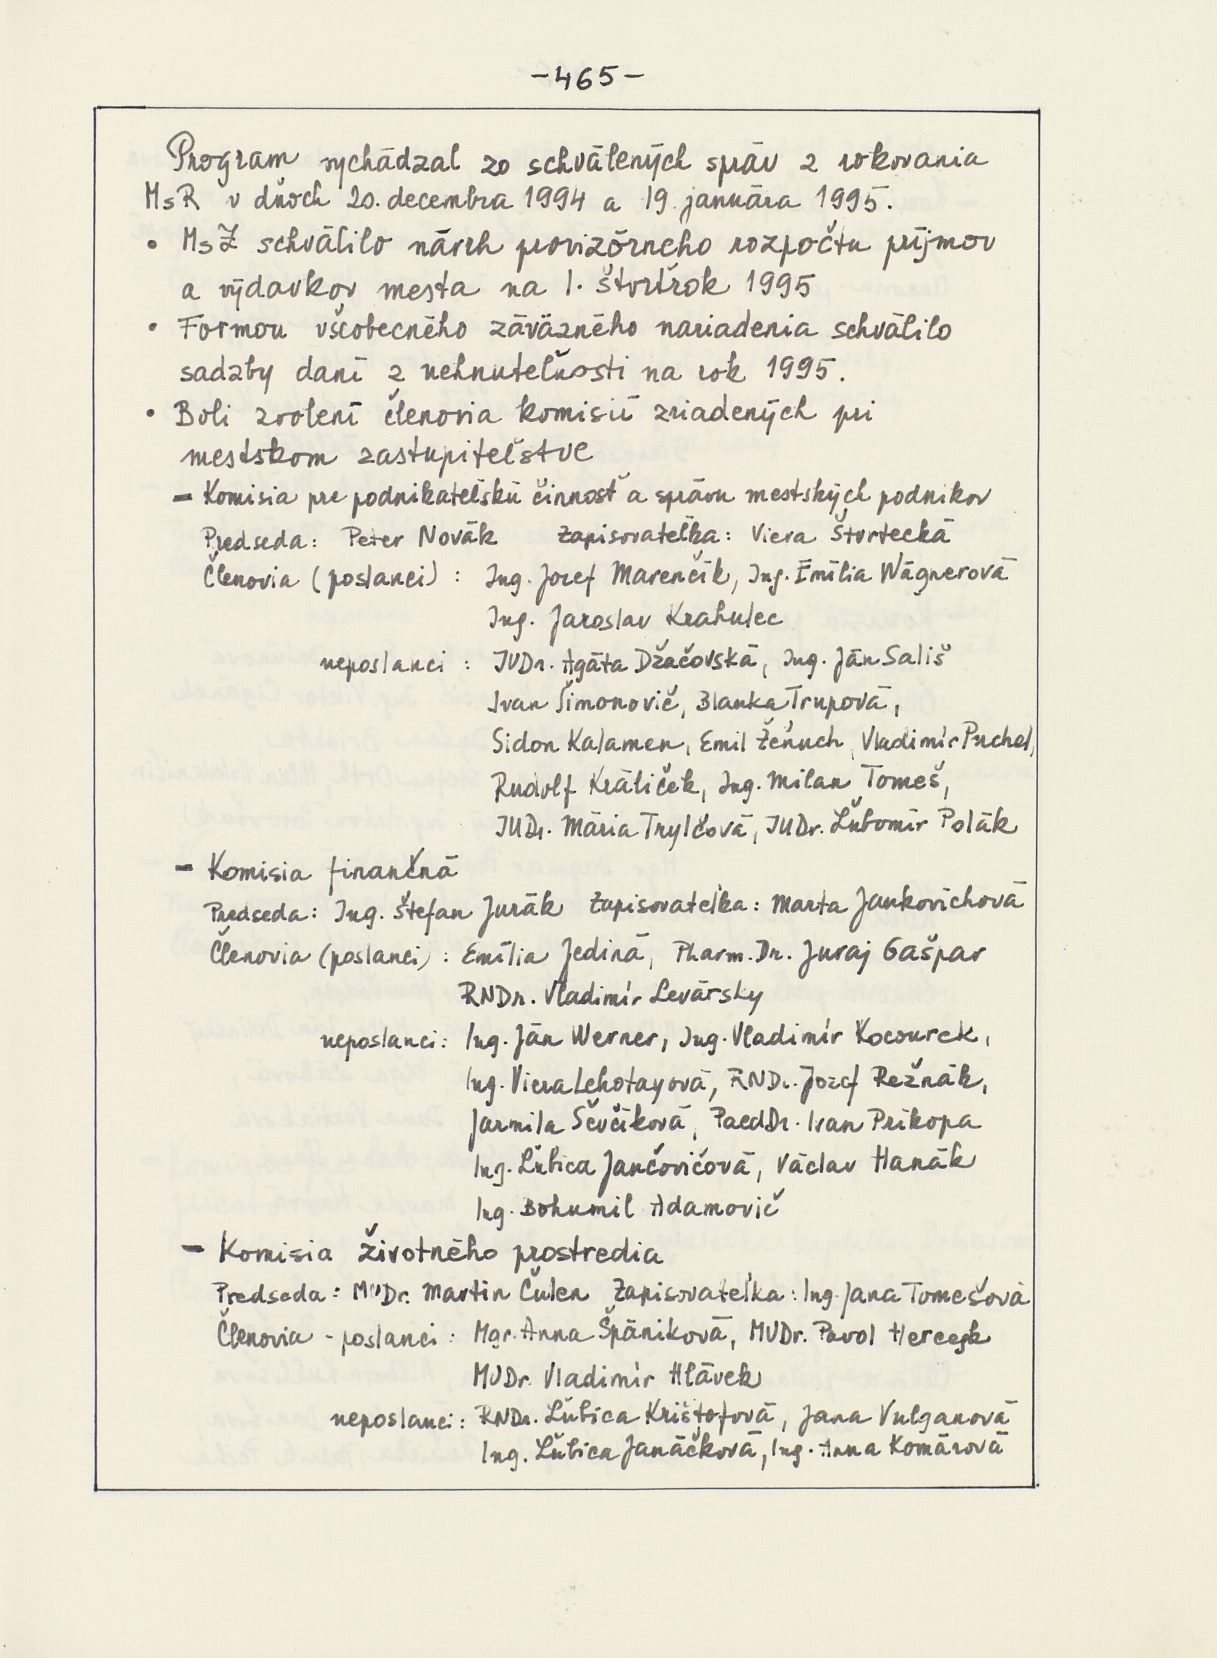 -465-
Program vychádzal zo schválených správ z rokovania
MsR v dňoch 20. decembra 1994 a 19. januára 1995.
• MsZ schválilo návrh provizórneho rozpočtu príjmov
a výdavkov mesta na I. štvrťrok 1995
• Formou všeobecného záväzného nariadenia schválilo
sadzby daní z nehnuteľnosti na rok 1995.
• Boli zvolení členovia komisií zriadených pri
mestskom zastupiteľstve
- Komisia pre podnikateľskú činnosť a správu mestských podnikov
Predseda: Peter Novák Zapisovateľka: Viera Štvrtecká
Členovia (poslanci): Ing. Jozef Marenčík, Ing. Emília Wágnerová
Ing. Jaroslav Krahulec
neposlanci: JUDr. Agáta Džačovská, Ing. Ján Sališ
Ivan Šimonovič, Blanka Trupová,
Sidon Kalamen, Emil Žeňuch, Vladimír Puchel,
Rudolf Králiček, Ing. Milan Tomeš,
JUDr. Mária Trylčová, JUDr. Ľubomír Polák
- Komisia finančná
Predseda: Ing. Štefan Jurák Zapisovateľka: Marta Jankovichová
Členovia (poslanci): Emília Jediná, Pharm.Dr. Juraj Gašpar
RNDr. Vladimír Levársky
neposlanci: Ing. Ján Werner, Ing. Vladimír Kocourek,
Ing. Viera Lehotayová, RNDr. Jozef Režnák,
Jarmila Ševčíková, PaedDr. Ivan Príkopa
Ing. Ľubica Jančovičová, Václav Hanák
Ing. Bohumil Adamovič
- Komisia životného prostredia
Predseda: MUDr. Martin Čulen Zapisovateľka: Ing. Jana Tomešová
Členovia - poslanci: Mgr. Anna Špániková, MUDr. Pavol Hercegh
MUDr. Vladimír Hlávek
neposlanci: RNDr. Ľubica Krištofová, Jana Vulganová
Ing. Ľubica Janáčková, Ing. Anna Komárová